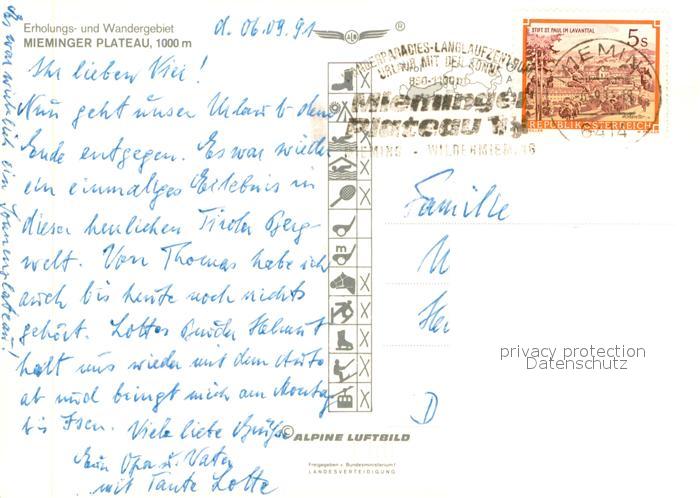 Erholungs- und Wandergebiet
MIEMINGER PLATEAU, 1000 m
d. 06.09.91
Ihr lieben Vier!
Nun geht unser Urlaub dem
Ende entgegen. Es war wieder
ein einmaliges Erlebnis in
dieser herrlichen Tiroler Berg-
welt. Von Thomas habe ich
auch bis heute noch nichts
gehört. Lottes Bruder Helmut
holt uns wieder mit dem Auto
ab und bringt mich am Montag
bis Isen. Viele liebe Grüße
Euer Opa u. Vater
mit Tante Lotte
Es war wirklich ein Sonnenplateau!
STIFT ST. PAUL IM LAVANTTAL
5 S
REPUBLIK ÖSTERREICH
WANDERPARADIES-LANGLAUFZENTRUM
URLAUB MIT DER SONNE
850-1100m
Mieminger
Plateau
WILDERMIEMING
MIEMING
6414
Familie
D
privacy protection
Datenschutz
© ALPINE LUFTBILD
Freigegeben v. Bundesministerium f.
LANDESVERTEIDIGUNG